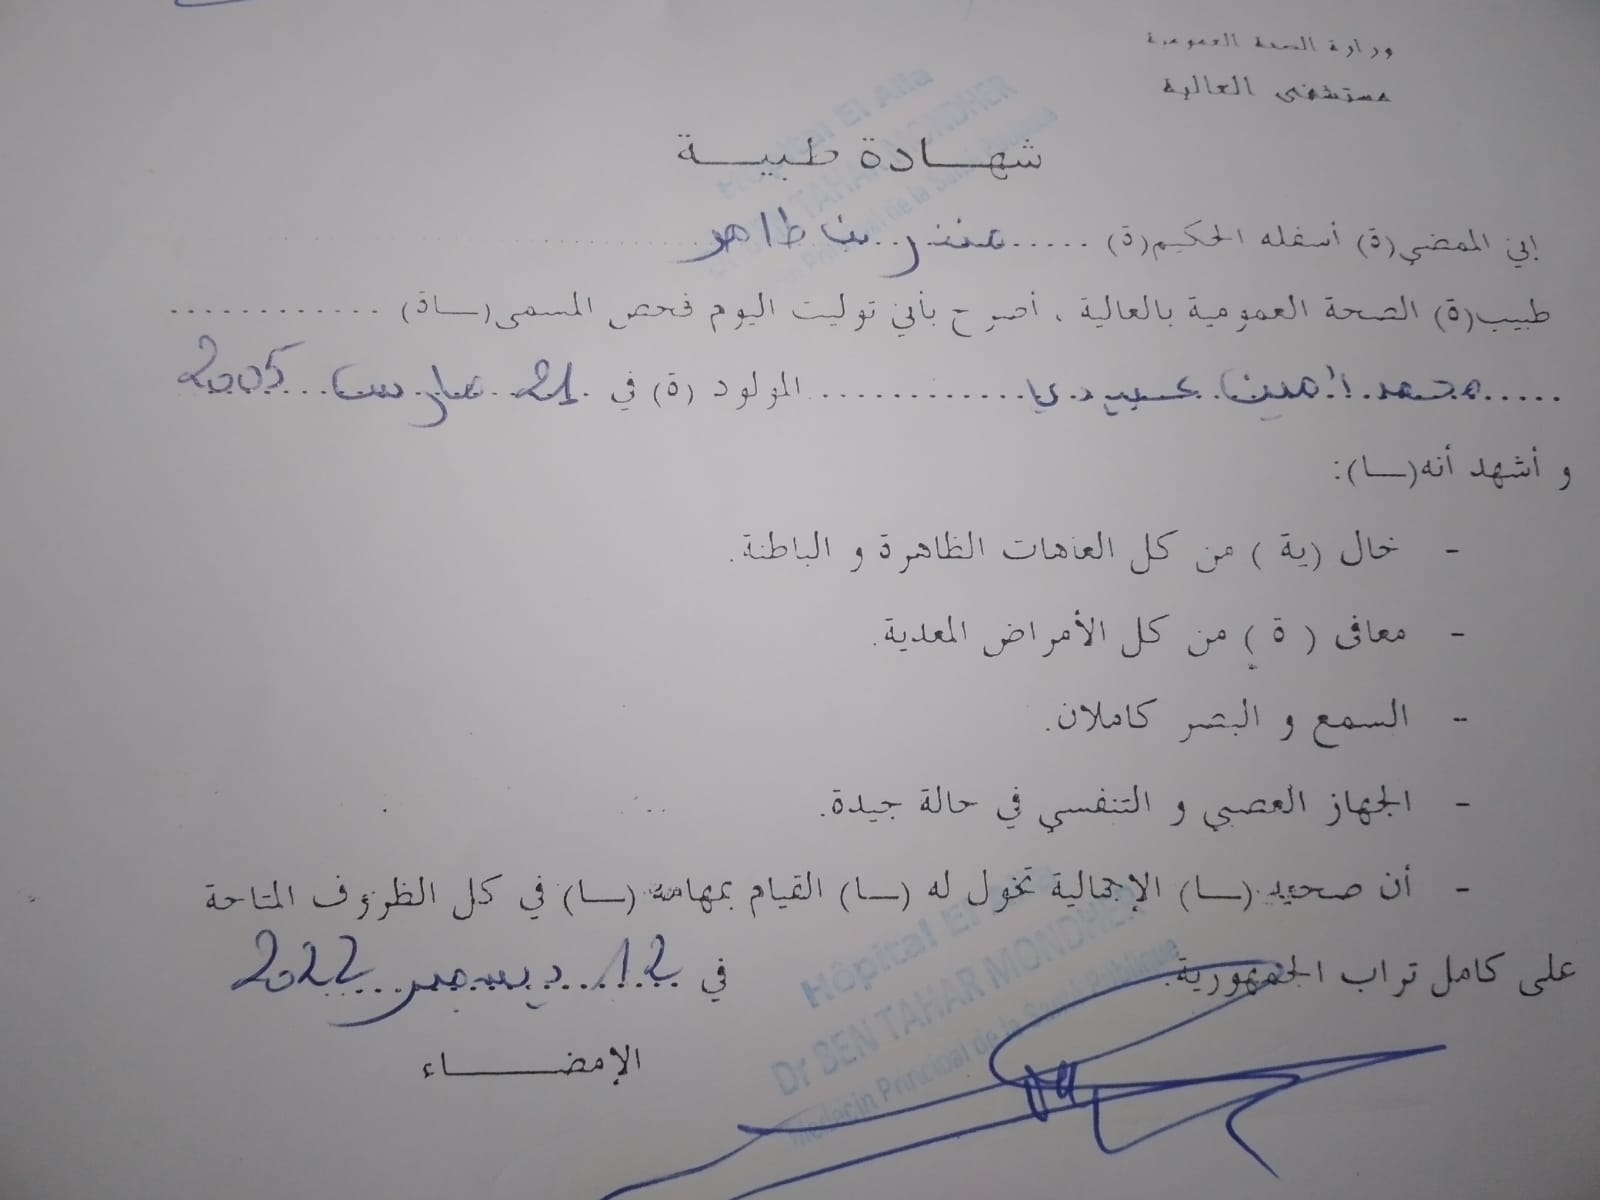 وزارة الصحة العمومية
مستشفى العالية
Hôpital El Alia
شهـــادة طبيـــة
إني الممضي(ة) أسفله الحكيم(ة) ..... منذر بن طاهر
طبيب(ة) الصحة العمومية بالعالية ، أصرح بأني توليت اليوم فحص المسمى(ــاة) ............
..... محمد أمين عبيدي ............ المولود (ة) في 21 مارس 2005
و أشهد أنه(ــا):
- خال (ية ) من كل العاهات الظاهرة و الباطنة.
- معافى ( ة ) من كل الأمراض المعدية.
- السمع و البصر كاملان.
- الجهاز العصبي و التنفسي في حالة جيدة.
- أن صحته (ــا) الإجمالية تخول له (ــا) القيام بمهامه (ــا) في كل الظروف المتاحة
على كامل تراب الجمهورية.
في 12 ديسمبر 2022
الإمضـــــــاء
Hôpital El Alia
Dr BEN TAHAR MONDHER
Médecin Principal de la Santé Publique